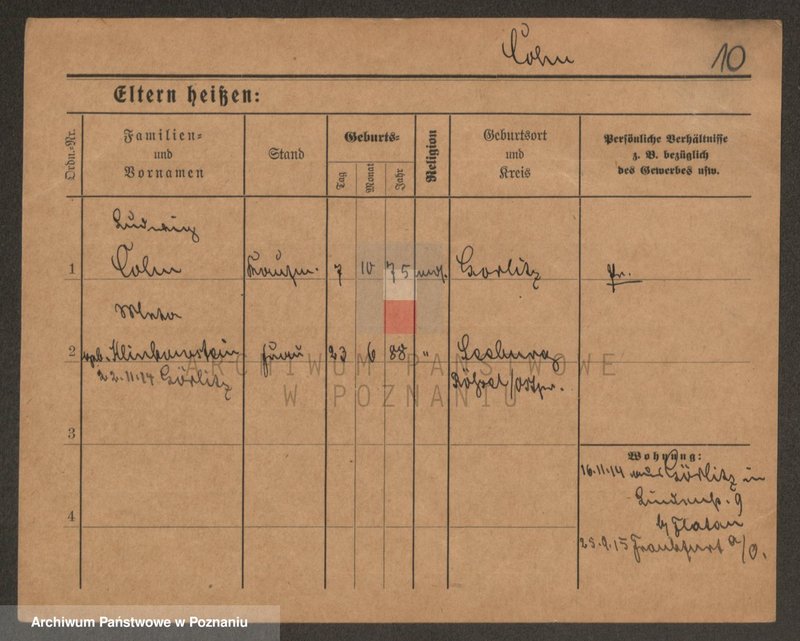 Cohn 10
Eltern heißen:
Ordn.-Nr.
Familien-
und
Vornamen
Stand
Geburts-
Tag
Monat
Jahr
Religion
Geburtsort
und
Kreis
Persönliche Verhältnisse
z. B. bezüglich
des Gewerbes usw.
Ludwig
1 Cohn Kaufm. 7 10 75 mos. Görlitz Pr.
Meta
2 geb. Klinkowstein Frau 23 6 88 " Seeburg
22.11.14 Görlitz Rößel/Ostpr.
3
Wohnung:
16.11.14 aus Görlitz in
Lindenstr. 9
4 b/ Flatau
23.9.15 Frankfurt a/O.
ARCHIWUM PAŃSTWOWE
W POZNANIU
Archiwum Państwowe w Poznaniu